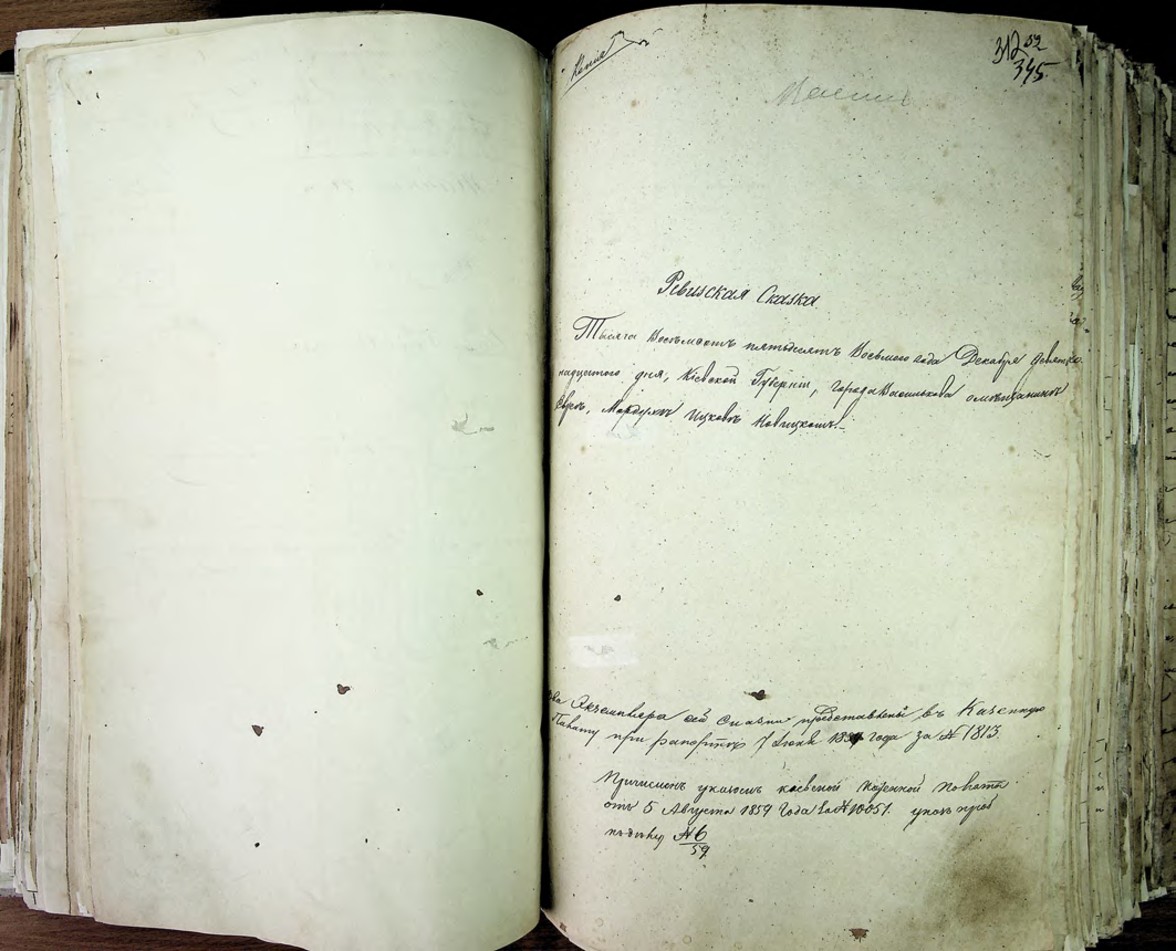 Копія
312 52
345
Ревизская Сказка
Тысяча Восемьсотъ пятьдесятъ Восьмого года Декабря девят
надцатого дня, Кіевской Губерніи, города Василькова о мѣщанинѣ
Евреѣ, Мордухѣ Ицковѣ Новицкомъ.
два Экземпляра сей Сказки представлены въ Казенную
Палату при рапортѣ 7 Іюня года за № 1813.
Причисленъ указомъ кіевской Казенной Палаты
отъ 5 Августа 1859 Года за № 10051. указъ при
къ дѣлу № 6
59